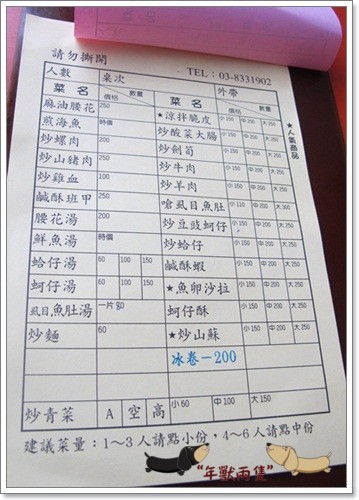 請勿撕開
人數 桌次 TEL：03-8331902 外帶
菜名 價格 數量 菜名 價格 數量
麻油腰花 250 ★涼拌脆皮 小150 中200 大250
煎海魚 時價 炒酸菜大腸 小150 中200 大250
炒螺肉 200 炒劍筍 小150 中200 大250
炒山豬肉 200 炒牛肉 小150 中200 大250
炒雞血 100 炒羊肉 小150 中200 大250
鹹酥班甲 250 嗆虱目魚肚 小150 中200 大300
腰花湯 200 炒豆豉蚵仔 小150 中200 大250
鮮魚湯 時價 炒蛤仔 小150 中200 大250
蛤仔湯 60 100 150 鹹酥蝦 小150 中200 大250
蚵仔湯 60 100 150 ★魚卵沙拉 小150 中200 大250
虱目魚肚湯 一片80 蚵仔酥 小150 中200 大250
炒麵 60 ★炒山蘇 小150 中200 大250
冰卷-200
炒青菜 A 空 高 小60 中100 大150
建議菜量：1～3人請點小份，4～6人請點中份
★人氣商品
"年獸兩隻"